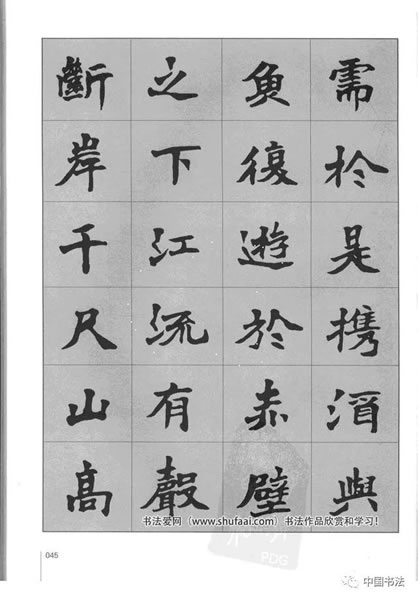 需於是携酒與
魚復遊於赤壁
之下江流有聲
斷岸千尺山高
书法爱网（www.shufaai.com）书法作品欣赏和学习！
PDG
045
中国书法